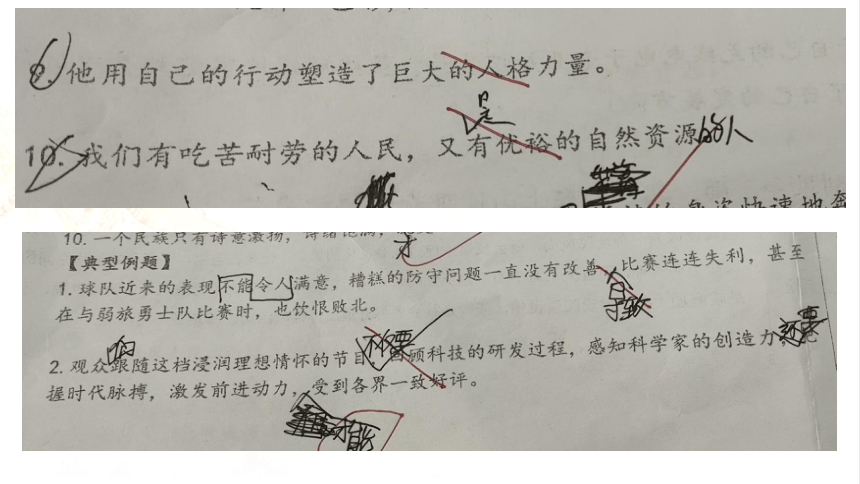 9. 他用自己的行动塑造了巨大的人格力量。
是
10. 我们有吃苦耐劳的人民，又有优裕的自然资源的人
10. 一个民族只有诗意激扬，
才
【典型例题】
1. 球队近来的表现不能令人满意，糟糕的防守问题一直没有改善，比赛连连失利，甚至
导致
在与弱旅勇士队比赛时，也饮恨败北。
2. 观众跟随这档浸润理想情怀的节目，回顾科技的研发过程，感知科学家的创造力，把
握时代脉搏，激发前进动力，受到各界一致好评。
才能